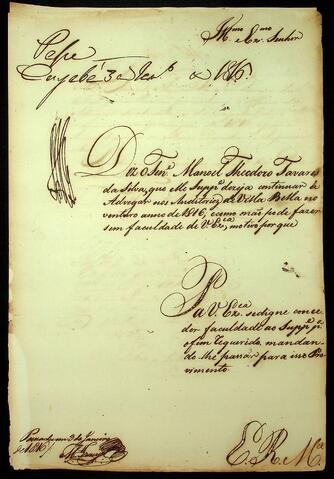 Illmo e Exmo Senhor
Passe
Cuyabá 3 de Janro de 1816
Diz o Tene Manoel Theodoro Tavares
da Silva, que elle Suppe dezeja continuar a
Advogar nos Auditorios de Villa Bella no
venturo anno de 1816, e como não pode fazer
sem faculdade de V. Exca, motivo porque
Pa V. Exca se digne conce-
der faculdade ao Suppe pa
o fim requerido, mandan-
do lhe passar para isso Pro-
vimento.
3 de Janeiro
de 1816
E. R. Mce